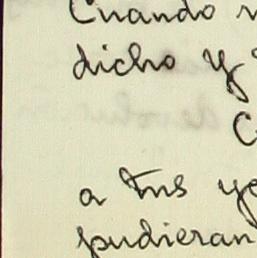 Cuando
dicho y
a tus
pudieran